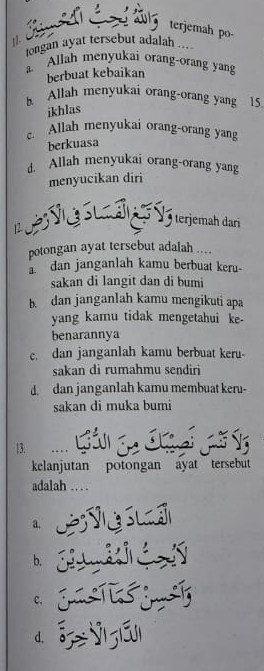 11. وَاللّٰهُ يُحِبُّ الْمُحْسِنِيْنَ terjemah po-
tongan ayat tersebut adalah ....
a. Allah menyukai orang-orang yang
berbuat kebaikan
b. Allah menyukai orang-orang yang 15.
ikhlas
c. Allah menyukai orang-orang yang
berkuasa
d. Allah menyukai orang-orang yang
menyucikan diri
12. وَلَا تَبْغِ الْفَسَادَ فِى الْاَرْضِ terjemah dari
potongan ayat tersebut adalah ....
a. dan janganlah kamu berbuat keru-
sakan di langit dan di bumi
b. dan janganlah kamu mengikuti apa
yang kamu tidak mengetahui ke-
benarannya
c. dan janganlah kamu berbuat keru-
sakan di rumahmu sendiri
d. dan janganlah kamu membuat keru-
sakan di muka bumi
13. .... وَلَا تَنْسَ نَصِيْبَكَ مِنَ الدُّنْيَا
kelanjutan potongan ayat tersebut
adalah ....
a. الْفَسَادَ فِى الْاَرْضِ
b. لَا يُحِبُّ الْمُفْسِدِيْنَ
c. وَاَحْسِنْ كَمَآ اَحْسَنَ
d. الدَّارَ الْاٰخِرَةَ